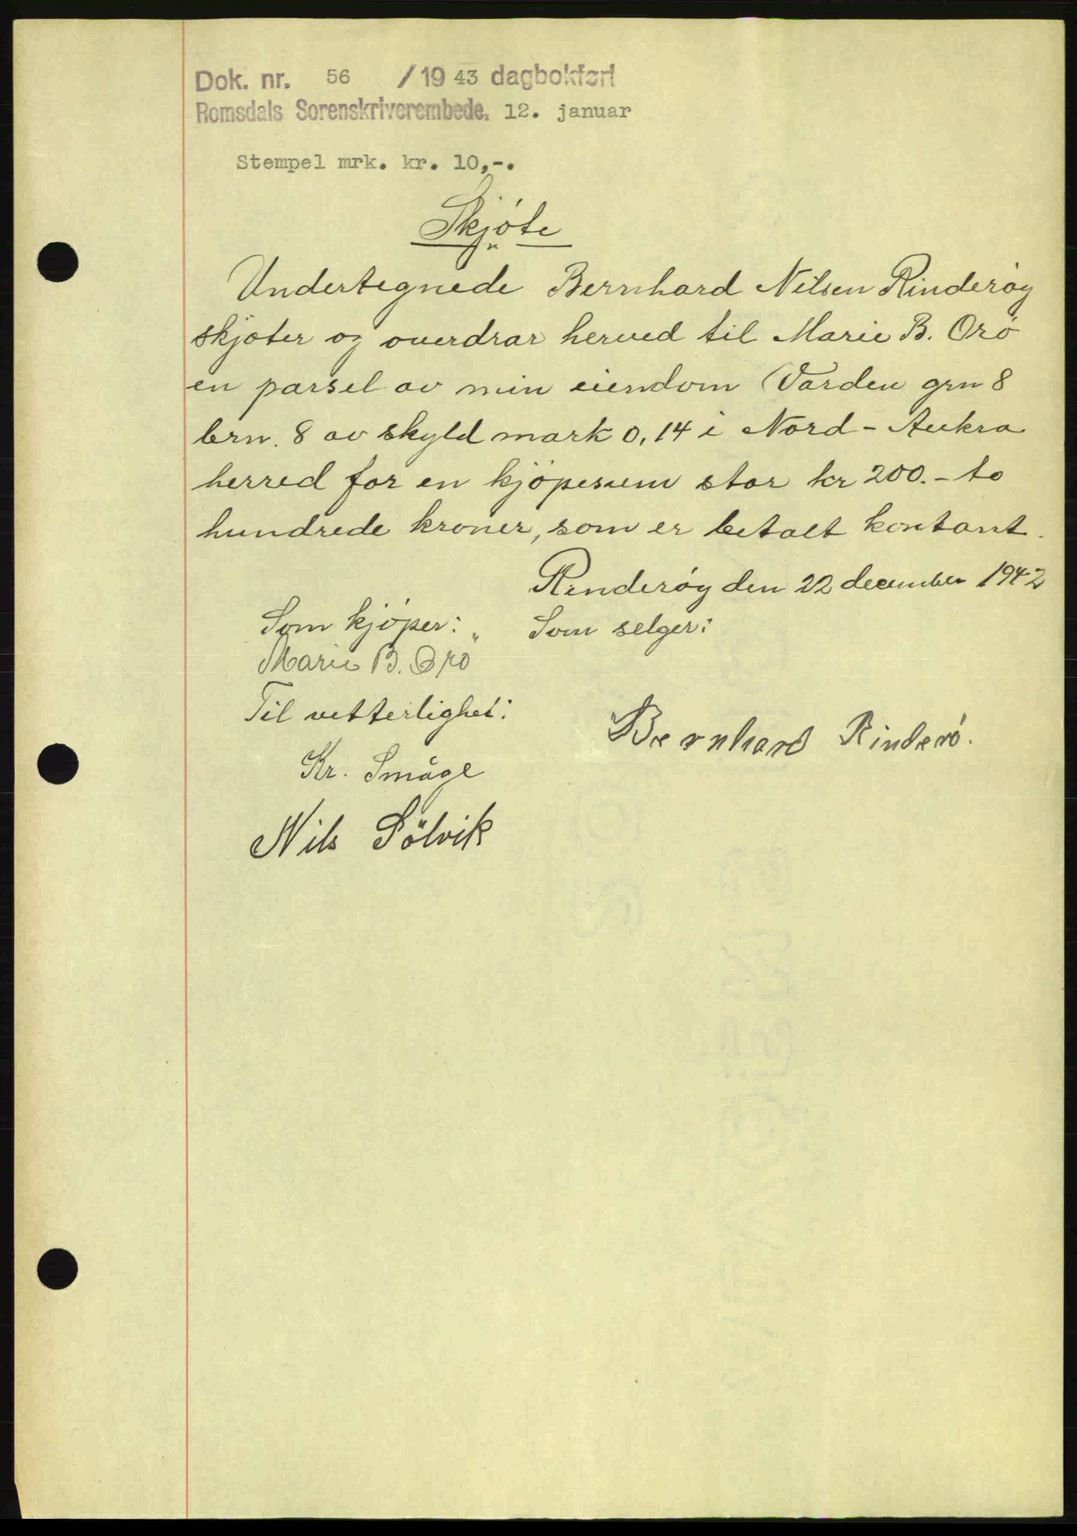 Dok. nr. 56 / 19 43 dagbokført
Romsdals Sorenskriverembede. 12. januar
Stempel mrk. kr. 10,-.
Skjöte
Undertegnede Bernhard Nilsen Rinderøy
skjøter og overdrar herved til Marie B. Orö
en parsel av min eiendom Varden grn 8
brn. 8 av skyld mark 0,14 i Nord-Aukra
herred for en kjöpesum stor kr 200.- to
hundrede kroner, som er betalt kontant.
Rinderöy den 22 december 1942
Som kjöper: Som selger:
Marie B. Orö
Til vitterlighet:
Bernhard Rinderö.
Kr. Småge
Nils Sölvik